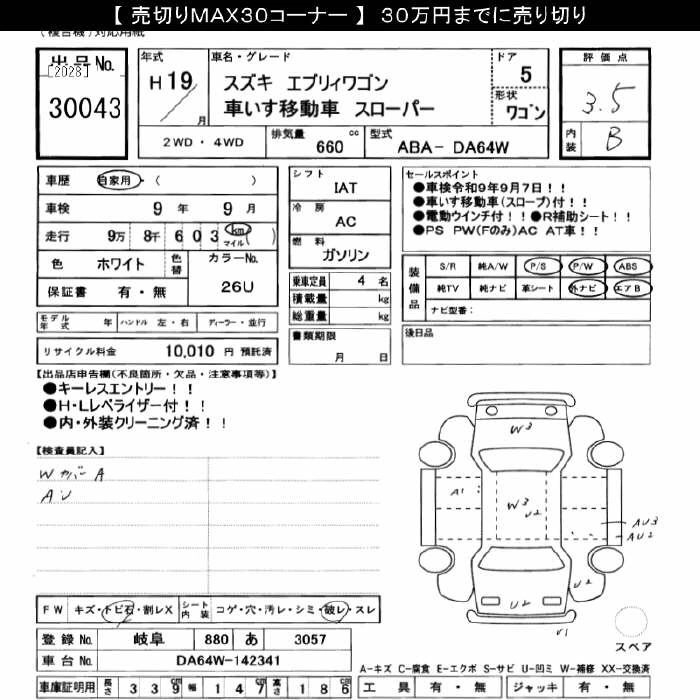 【 売切りMAX30コーナー 】 30万円までに売り切り
(複合機)対応用紙
出品No.
[2028]
30043
年式
H19
月
車名・グレード
スズキ エブリィワゴン
車いす移動車 スローパー
ドア
5
形状
ワゴン
2WD・4WD
排気量
660 cc
型式
ABA- DA64W
評価点
3.5
内装
B
車歴 自家用・( )
車検 9年 9月
走行 9万 8千 603 km マイル ( )
色 ホワイト 色替
カラーNo.
26U
保証書 有・無
シフト
IAT
冷房
AC
燃料
ガソリン
乗車定員 4 名
積載量 kg
総重量 kg
書類期限
月 日
セールスポイント
●車検令和9年9月7日!!
●車いす移動車(スロープ)付!!
●電動ウインチ付!!●R補助シート!!
●PS PW(Fのみ)AC AT車!!
装備品
S/R 純A/W P/S P/W ABS
純TV 純ナビ 革シート 外ナビ エアB
ナビ型番:
後日品
モデル年式 年 ハンドル 左・右 ディーラー・並行
リサイクル料金 10,010 円 預託済
【出品店申告欄(不良箇所・欠品・注意事項等)】
●キーレスエントリー!!
●H・Lレベライザー付!!
●内・外装クリーニング済!!
【検査員記入】
Wカバー A
AU
W3
A1
W3
U2
AU3
AU2
U2
U2
U1
スペア
FW キズ・トビ石・割レX
シート内装 コゲ・穴・汚レ・シミ・破レ・スレ
登録No. 岐阜 880 あ 3057
車台No. DA64W-142341
車庫証明用 長さ 339cm 幅 147cm 高さ 186cm
A-キズ C-腐食 E-エクボ S-サビ U-凹ミ W-補修 XX-交換済
工具 有・無 ジャッキ 有・無